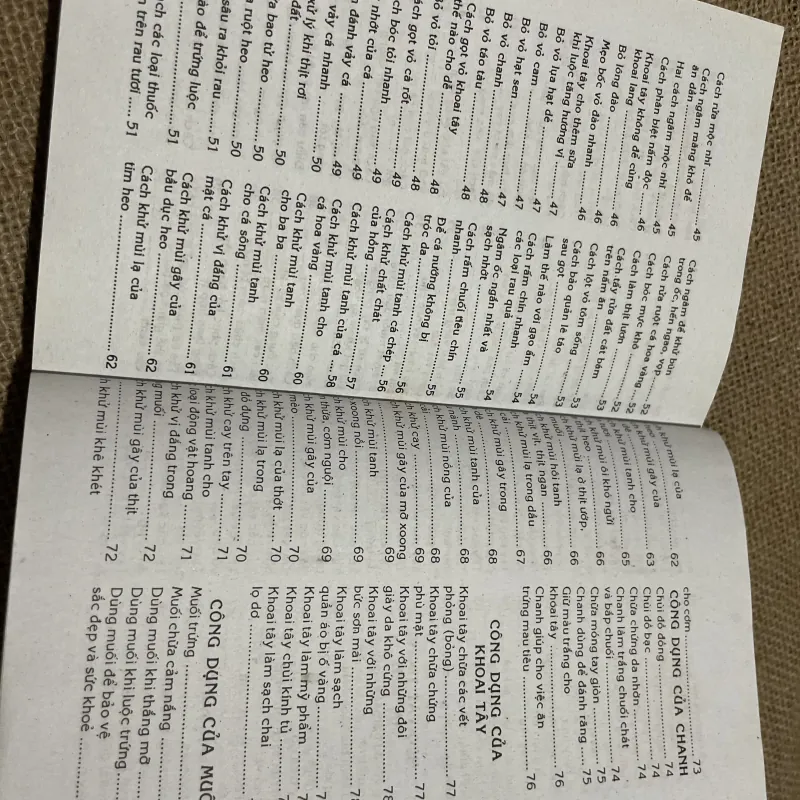 Cách rửa mộc nhĩ ........ 45
Cách ngâm măng khô để
ăn dần ........ 45
Hai cách ngâm mộc nhĩ ........ 45
Cách phân biệt nấm độc ........ 45
Khoai tây không để cùng
khoai lang ........ 46
Bỏ lông đào ........ 46
Mẹo bóc vỏ đào nhanh ........ 46
Khoai tây cho thêm sữa
khi luộc tăng hương vị ........ 46
Bỏ vỏ lụa hạt dẻ ........ 47
Bỏ vỏ cam ........ 47
Bỏ vỏ hạt sen ........ 47
Bỏ vỏ chanh ........ 47
Bỏ vỏ táo tàu ........ 48
Cách gọt vỏ khoai tây
thế nào cho dễ ........ 48
Bỏ vỏ tỏi ........ 48
gọt vỏ cà rốt ........ 48
bóc tỏi nhanh ........ 49
nhớt của cá ........ 49
đánh vảy cá ........ 49
vảy cá nhanh ........ 49
xử lý khi thịt rơi
đất ........ 50
bao tử heo ........ 50
ruột heo ........ 50
sâu ra khỏi rau ........ 51
để trứng luộc ........ 51
các loại thuốc
trên rau tươi ..... 51
Cách ngâm để khử bùn
trong ốc, hến ngao, vọp
Cách rửa ruột cá hoa vàng ... 52
Cách bóc mực khô ........ 52
Cách làm thịt lươn ........ 52
Cách tẩy rửa đất cát bám
trên nấm ăn ........ 53
Cách lột vỏ tôm sống ........ 53
Cách bảo quản lê táo
sau gọt ........ 53
Làm thế nào với gạo ẩm ..... 54
Cách rấm chín nhanh
các loại rau quả ........ 54
Ngâm ốc ngần nhất và
sạch nhớt ........ 54
Cách rấm chuối tiêu chín
nhanh ........ 55
Để cá nướng không bị
tróc da ........ 55
Cách khử mùi tanh cá chép ... 56
Cách khử chất chát
của hồng ........ 57
Cách khử mùi tanh của cá .... 58
Cách khử mùi tanh cho
cá hoa vàng ........ 60
Cách khử mùi tanh
cho ba ba ........ 60
Cách khử mùi tanh
cho cá sông ........ 61
Cách khử vị đắng của
mật cá ........ 61
Cách khử mùi gây của
bầu dục heo ........ 62
Cách khử mùi lạ của
tim heo ........ 62
khử mùi lạ của
........ 62
khử mùi gây của
........ 63
khử mùi tanh cho
........ 65
khử mùi ôi khó ngửi
thịt heo ........ 66
khử mùi lạ ở thịt ướp,
muối ........ 66
khử mùi hôi tanh
thịt vịt, thịt ngan ........ 66
khử mùi lạ trong dầu
........ 67
khử mùi gây trong
........ 68
khử mùi tanh của
........ 68
khử mùi nồng của
........ 68
khử cay ........ 69
khử mùi gây của mỡ xoong
xoong nồi ........ 69
khử mùi tanh
........ 69
khử mùi cho
thừa, cơm nguội ........ 69
khử mùi gây của
mèo ........ 70
khử mùi lạ của thớt ........ 70
khử mùi lạ trong
đồ đựng ........ 70
khử cay trên tay ........ 71
khử mùi tanh cho
loại động vật hoang ........ 71
khử vị đắng trong
muối ........ 72
khử mùi gây của thịt
........ 72
khử mùi khê khét
cho cơm ........ 73
CÔNG DỤNG CỦA CHANH
Chùi đồ đồng ........ 74
Chùi đồ bạc ........ 74
Chữa chứng da nhờn ........ 74
Chanh làm trắng chuối chát
và bắp chuối ........ 74
Chữa móng tay giòn ........ 75
Chanh dùng để đánh răng .... 75
Giữ màu trắng cho
khoai tây ........ 76
Chanh giúp cho việc ăn
trứng mau tiêu ........ 76
CÔNG DỤNG CỦA
KHOAI TÂY
Khoai tây chữa các vết
phỏng (bỏng) ........ 77
Khoai tây chữa chứng
phù mặt ........ 77
Khoai tây với những đôi
giày da khô cứng ........ 78
Khoai tây với những
bức sơn mài ........
Khoai tây làm sạch
quần áo bị ố vàng ........
Khoai tây làm mỹ phẩm ....
Khoai tây chùi kính tủ ....
Khoai tây làm sạch chai
lọ dơ ........
CÔNG DỤNG CỦA MUỐ
Muối trứng ........
Muối chữa cảm nắng ........
Dùng muối khi thắng mỡ ....
Dùng muối khi luộc trứng ....
Dùng muối để bảo vệ
sắc đẹp và sức khoẻ ........